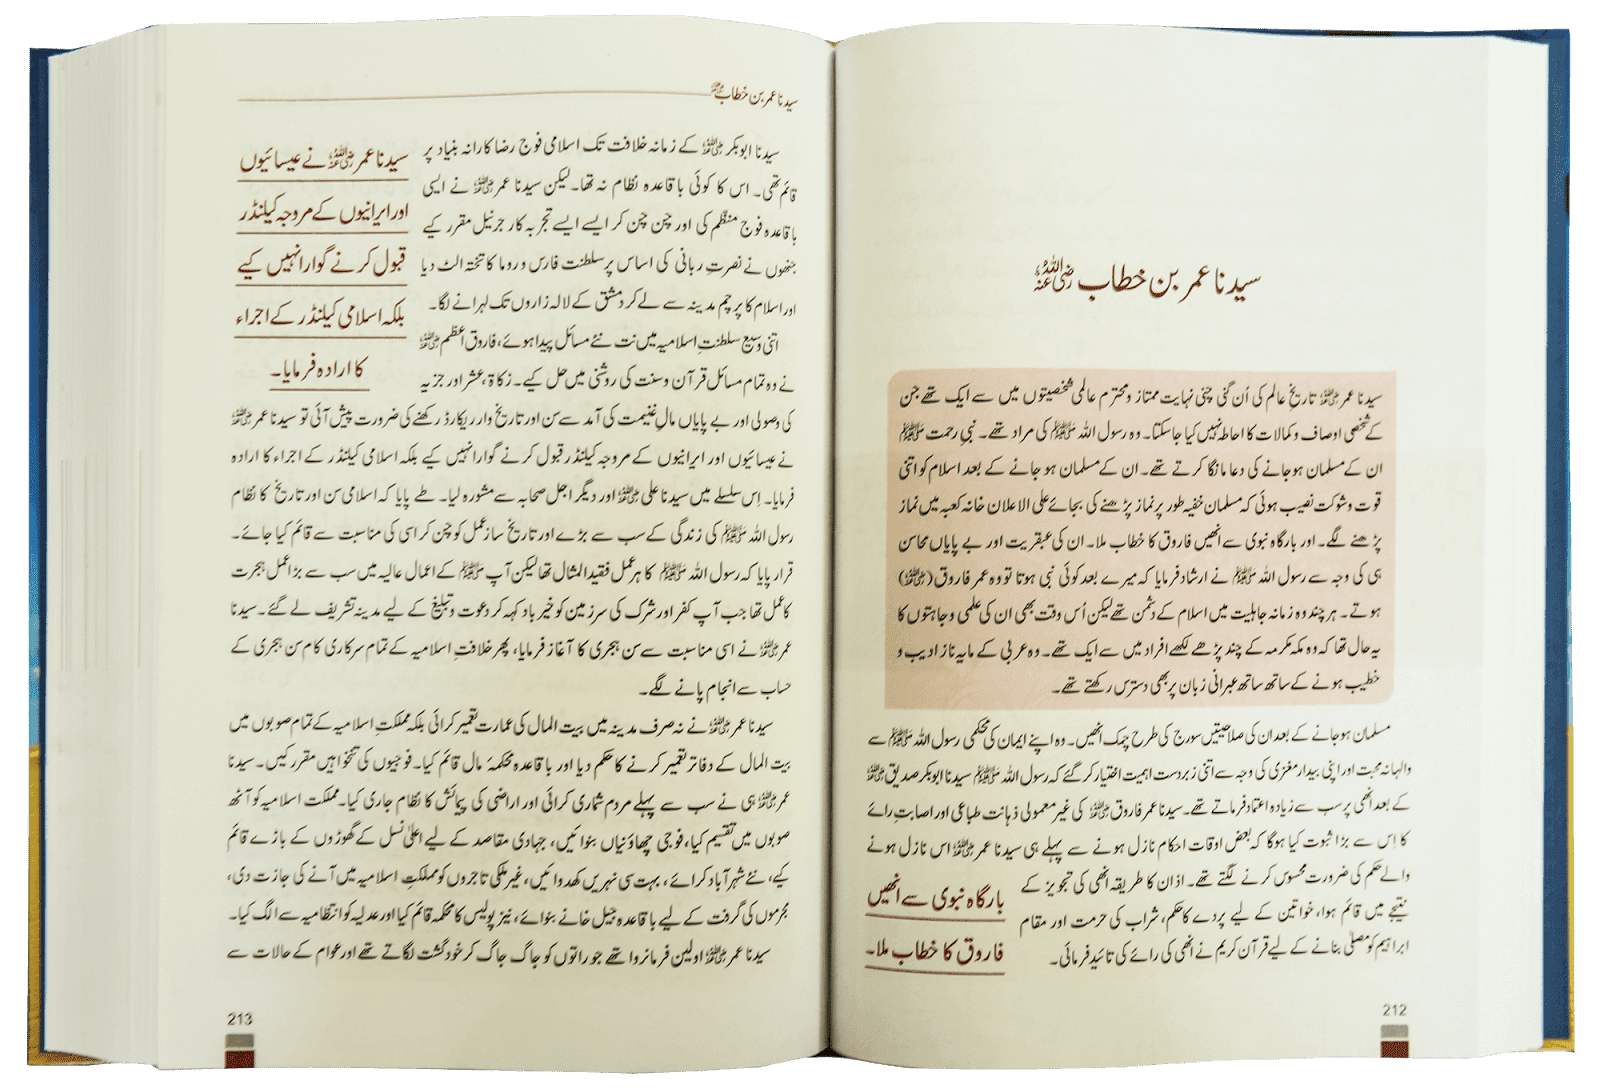 سیدنا عمر بن خطاب رضی اللہ عنہ
سیدنا عمر رضی اللہ عنہ تاریخِ عالم کی اُن گنی چنی نہایت ممتاز و محترم عالمی شخصیتوں میں سے ایک تھے جن
کے شخصی اوصاف و کمالات کا احاطہ نہیں کیا جاسکتا۔ وہ رسول اللہ ﷺ کی مراد تھے۔ نبیِ رحمت ﷺ
ان کے مسلمان ہو جانے کی دعا مانگا کرتے تھے۔ ان کے مسلمان ہو جانے کے بعد اسلام کو اتنی
قوت و شوکت نصیب ہوئی کہ مسلمان خفیہ طور پر نماز پڑھنے کی بجائے علی الاعلان خانہ کعبہ میں نماز
پڑھنے لگے۔ اور بارگاہ نبوی سے انھیں فاروق کا خطاب ملا۔ ان کی عبقریت اور بے پایاں محاسن
ہی کی وجہ سے رسول اللہ ﷺ نے ارشاد فرمایا کہ میرے بعد کوئی نبی ہوتا تو وہ عمر فاروق (رضی اللہ عنہ)
ہوتے۔ ہر چند وہ زمانہ جاہلیت میں اسلام کے دشمن تھے لیکن اُس وقت بھی ان کی علمی وجاہتوں کا
یہ حال تھا کہ وہ مکہ مکرمہ کے چند پڑھے لکھے افراد میں سے ایک تھے۔ وہ عربی کے مایہ ناز ادیب و
خطیب ہونے کے ساتھ ساتھ عبرانی زبان پر بھی دسترس رکھتے تھے۔
مسلمان ہو جانے کے بعد ان کی صلاحیتیں سورج کی طرح چمک اٹھیں۔ وہ اپنے ایمان کی محکمی رسول اللہ ﷺ سے
والہانہ محبت اور اپنی بیدار مغزی کی وجہ سے اتنی زبردست اہمیت اختیار کر گئے کہ رسول اللہ ﷺ سیدنا ابوبکر صدیق رضی اللہ عنہ
کے بعد انھی پر سب سے زیادہ اعتماد فرماتے تھے۔ سیدنا عمر فاروق رضی اللہ عنہ کی غیر معمولی ذہانت طباعی اور اصابتِ رائے
کا اِس سے بڑا ثبوت کیا ہوگا کہ بعض اوقات احکام نازل ہونے سے پہلے ہی سیدنا عمر رضی اللہ عنہ اس نازل ہونے
والے حکم کی ضرورت محسوس کرنے لگتے تھے۔ اذان کا طریقہ انھی کی تجویز کے
نتیجے میں قائم ہوا، خواتین کے لیے پردے کا حکم، شراب کی حرمت اور مقام
ابراہیم کو مصلّٰی بنانے کے لیے قرآن کریم نے انھی کی رائے کی تائید فرمائی۔
بارگاہ نبوی سے انھیں
فاروق کا خطاب ملا۔
212
سیدنا عمر بن خطاب رضی اللہ عنہ
سیدنا ابوبکر رضی اللہ عنہ کے زمانہ خلافت تک اسلامی فوج رضاکارانہ بنیاد پر
قائم تھی۔ اس کا کوئی باقاعدہ نظام نہ تھا۔ لیکن سیدنا عمر رضی اللہ عنہ نے ایسی
باقاعدہ فوج منظّم کی اور چن چن کر ایسے ایسے تجربہ کار جرنیل مقرر کیے
جنھوں نے نصرتِ ربانی کی اساس پر سلطنت فارس و روما کا تختہ الٹ دیا
اور اسلام کا پرچم مدینہ سے لے کر دمشق کے لالہ زاروں تک لہرانے لگا۔
اتنی وسیع سلطنتِ اسلامیہ میں نت نئے مسائل پیدا ہوئے، فاروق اعظم رضی اللہ عنہ
نے وہ تمام مسائل قرآن و سنت کی روشنی میں حل کیے۔ زکاۃ، عشر اور جزیہ
سیدنا عمر رضی اللہ عنہ نے عیسائیوں
اور ایرانیوں کے مروجہ کیلنڈر
قبول کرنے گوارا نہیں کیے
بلکہ اسلامی کیلنڈر کے اجراء
کا ارادہ فرمایا۔
کی وصولی اور بے پایاں مالِ غنیمت کی آمد سے سن اور تاریخ وار ریکارڈ رکھنے کی ضرورت پیش آئی تو سیدنا عمر رضی اللہ عنہ
نے عیسائیوں اور ایرانیوں کے مروجہ کیلنڈر قبول کرنے گوارا نہیں کیے بلکہ اسلامی کیلنڈر کے اجراء کا ارادہ
فرمایا۔ اِس سلسلے میں سیدنا علی رضی اللہ عنہ اور دیگر اجل صحابہ سے مشورہ لیا۔ طے پایا کہ اسلامی سن اور تاریخ کا نظام
رسول اللہ ﷺ کی زندگی کے سب سے بڑے اور تاریخ ساز عمل کو چن کر اسی کی مناسبت سے قائم کیا جائے۔
قرار پایا کہ رسول اللہ ﷺ کا ہر عمل فقید المثال تھا لیکن آپ ﷺ کے اعمال عالیہ میں سب سے بڑا عمل ہجرت
کا عمل تھا جب آپ کفر اور شرک کی سرزمین کو خیر باد کہہ کر دعوت و تبلیغ کے لیے مدینہ تشریف لے گئے۔ سیدنا
عمر رضی اللہ عنہ نے اسی مناسبت سے سن ہجری کا آغاز فرمایا، پھر خلافتِ اسلامیہ کے تمام سرکاری کام سن ہجری کے
حساب سے انجام پانے لگے۔
سیدنا عمر رضی اللہ عنہ نے نہ صرف مدینہ میں بیت المال کی عمارت تعمیر کرائی بلکہ مملکتِ اسلامیہ کے تمام صوبوں میں
بیت المال کے دفاتر تعمیر کرنے کا حکم دیا اور باقاعدہ محکمۂ مال قائم کیا۔ فوجیوں کی تنخواہیں مقرر کیں۔ سیدنا
عمر رضی اللہ عنہ ہی نے سب سے پہلے مردم شماری کرائی اور اراضی کی پیمائش کا نظام جاری کیا۔ مملکت اسلامیہ کو آٹھ
صوبوں میں تقسیم کیا، فوجی چھاؤنیاں بنوائیں، جہادی مقاصد کے لیے اعلیٰ نسل کے گھوڑوں کے باڑے قائم
کیے، نئے شہر آباد کرائے، بہت سی نہریں کھدوائیں، غیر ملکی تاجروں کو مملکتِ اسلامیہ میں آنے کی جازت دی،
مجرموں کی گرفت کے لیے باقاعدہ جیل خانے بنوائے، نیز پولیس کا محکمہ قائم کیا اور عدلیہ کو انتظامیہ سے الگ کیا۔
سیدنا عمر رضی اللہ عنہ اولین فرمانروا تھے جو راتوں کو جاگ جاگ کر خود گشت لگاتے تھے اور عوام کے حالات سے
213